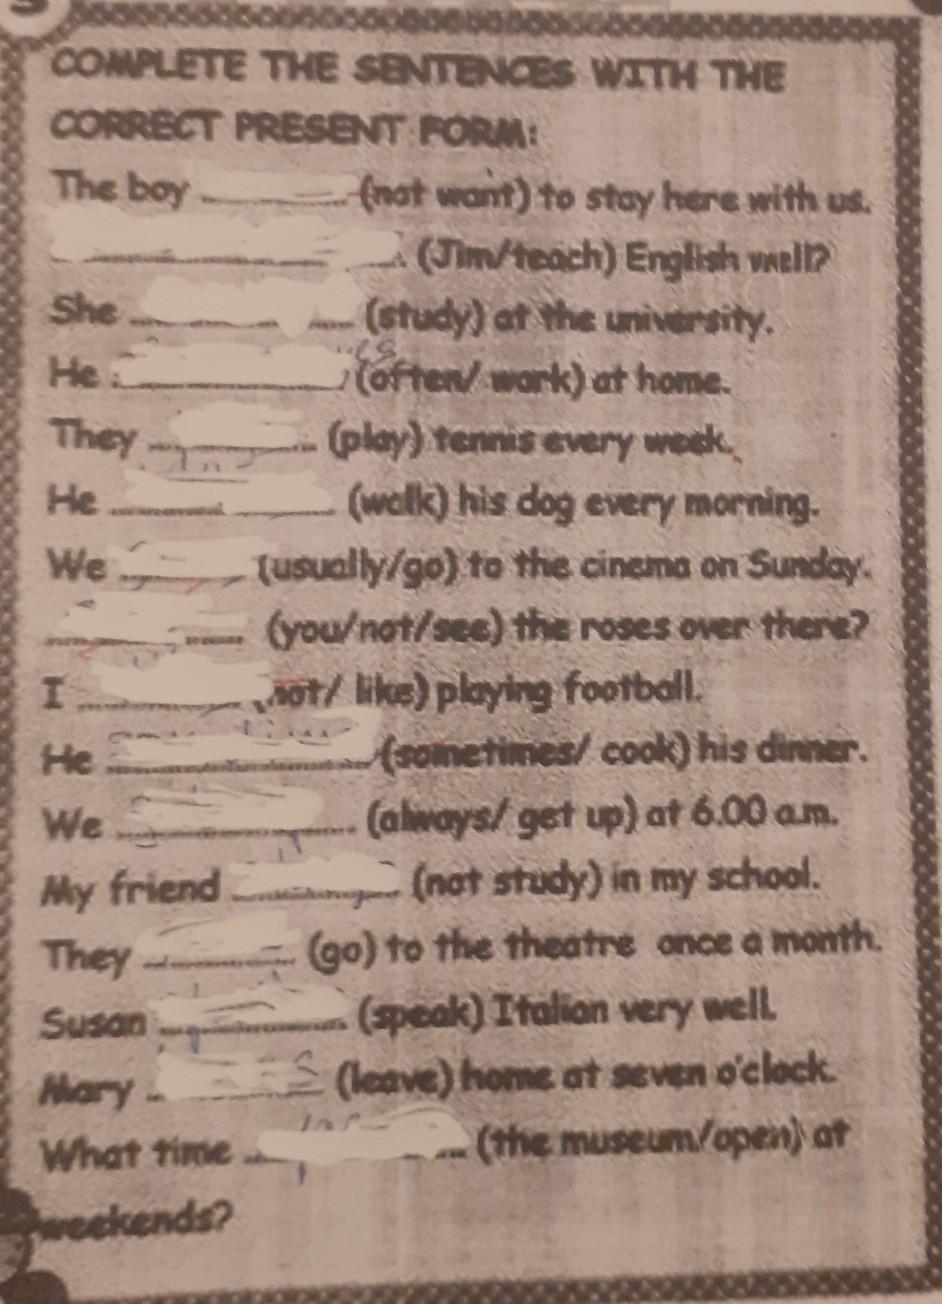 COMPLETE THE SENTENCES WITH THE
CORRECT PRESENT FORM:
The boy ............ (not want) to stay here with us.
............ (Jim/teach) English well?
She ............ (study) at the university.
He ............ (often/ work) at home.
They ............ (play) tennis every week.
He ............ (walk) his dog every morning.
We ............ (usually/go) to the cinema on Sunday.
............ (you/not/see) the roses over there?
I ............ not/ like) playing football.
He ............ (sometimes/ cook) his dinner.
We ............ (always/ get up) at 6.00 a.m.
My friend ............ (not study) in my school.
They ............ (go) to the theatre once a month.
Susan ............ (speak) Italian very well.
Mary ............ (leave) home at seven o'clock.
What time ............ (the museum/open) at
weekends?